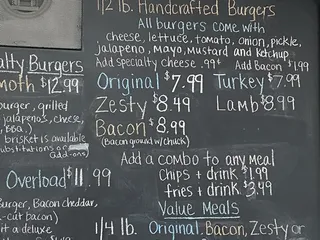 1/2 lb. Handcrafted Burgers
All burgers come with
cheese, lettuce, tomato, onion, pickle,
jalapeno, Mayo, Mustard and ketchup
Add specialty cheese .99¢ Add Bacon $1.99
Original $7.99 Turkey $7.99
Zesty $8.49 Lamb $8.99
Bacon $8.99
(Bacon ground w/chuck)
Add a combo to any meal
chips + drink $1.99
fries + drink $3.99
Value Meals
1/4 lb. Original, Bacon, Zesty or
alty Burgers
moth $12.99
burger, grilled
jalapeños, cheese,
brisket is available
substitutions or
add-ons)
Overload $11.99
urger, Bacon cheddar,
-cut bacon)
it a deluxe